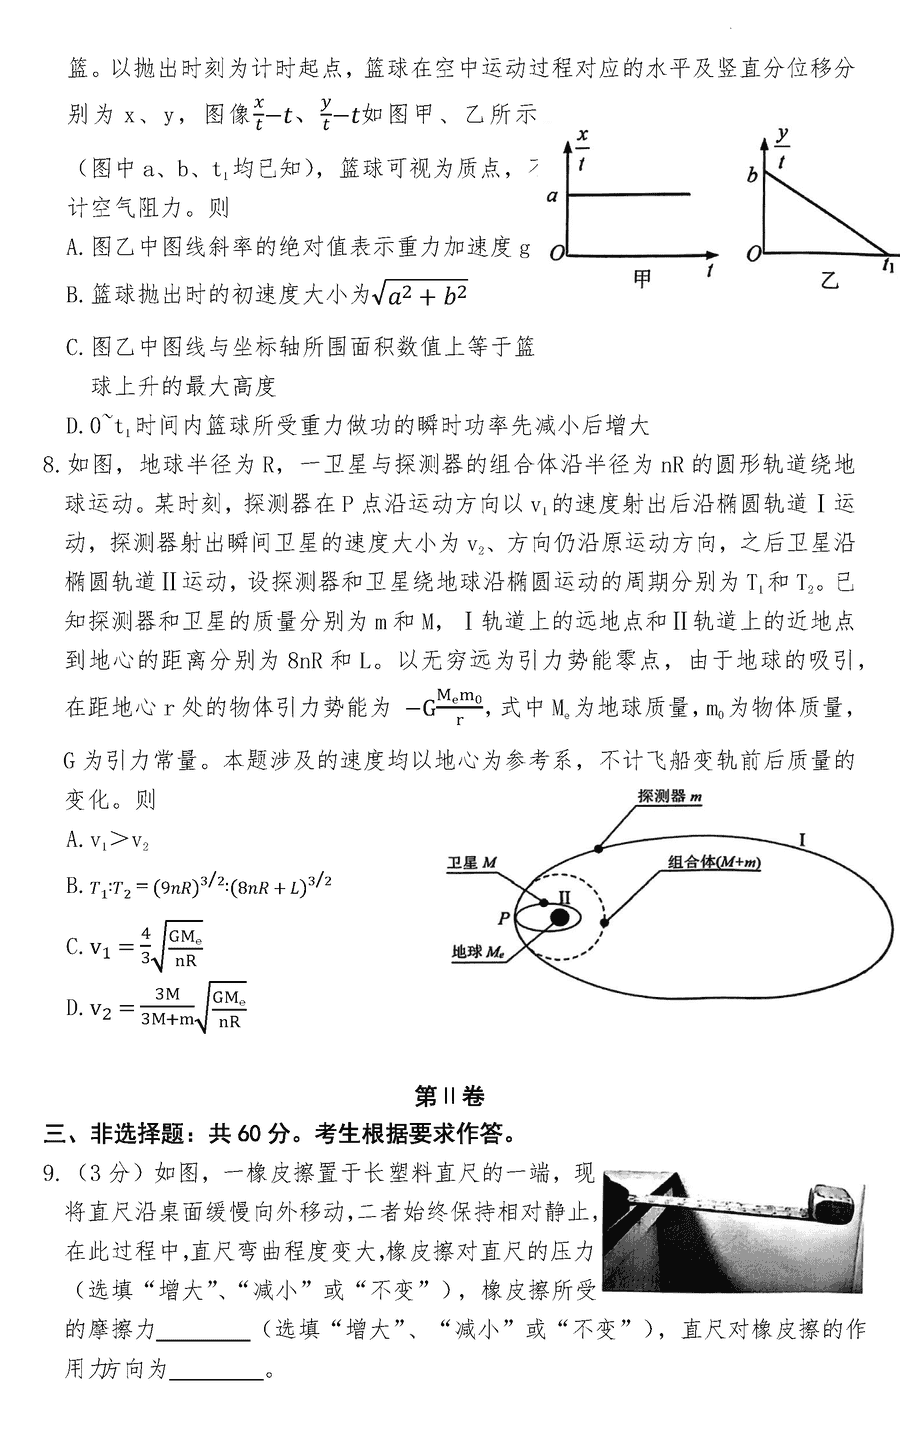 篮。以抛出时刻为计时起点，篮球在空中运动过程对应的水平及竖直分位移分
别为 x、y，图像x/t−t、y/t−t如图甲、乙所示
（图中 a、b、t₁均已知），篮球可视为质点，不
计空气阻力。则
A.图乙中图线斜率的绝对值表示重力加速度 g
B.篮球抛出时的初速度大小为√(a²+b²)
C.图乙中图线与坐标轴所围面积数值上等于篮
球上升的最大高度
D.0~t₁时间内篮球所受重力做功的瞬时功率先减小后增大
x/t
a
O
t
甲
y/t
b
O
t₁
乙
8.如图，地球半径为 R，一卫星与探测器的组合体沿半径为 nR 的圆形轨道绕地
球运动。某时刻，探测器在 P 点沿运动方向以 v₁的速度射出后沿椭圆轨道Ⅰ运
动，探测器射出瞬间卫星的速度大小为 v₂、方向仍沿原运动方向，之后卫星沿
椭圆轨道Ⅱ运动，设探测器和卫星绕地球沿椭圆运动的周期分别为 T₁和 T₂。已
知探测器和卫星的质量分别为 m 和 M，Ⅰ轨道上的远地点和Ⅱ轨道上的近地点
到地心的距离分别为 8nR 和 L。以无穷远为引力势能零点，由于地球的吸引，
在距地心 r 处的物体引力势能为 −G Mₑm₀/r，式中 Mₑ为地球质量，m₀为物体质量，
G 为引力常量。本题涉及的速度均以地心为参考系，不计飞船变轨前后质量的
变化。则
A.v₁＞v₂
B.T₁:T₂ = (9nR)^3/2:(8nR + L)^3/2
C.v₁ = 4/3√(GMₑ/nR)
D.v₂ = 3M/(3M+m)√(GMₑ/nR)
探测器 m
Ⅰ
卫星 M
组合体(M+m)
Ⅱ
P
地球 Mₑ
第Ⅱ卷
三、非选择题：共 60 分。考生根据要求作答。
9.（3 分）如图，一橡皮擦置于长塑料直尺的一端，现
将直尺沿桌面缓慢向外移动，二者始终保持相对静止，
在此过程中，直尺弯曲程度变大，橡皮擦对直尺的压力
（选填“增大”、“减小”或“不变”），橡皮擦所受
的摩擦力________（选填“增大”、“减小”或“不变”），直尺对橡皮擦的作
用力方向为________。